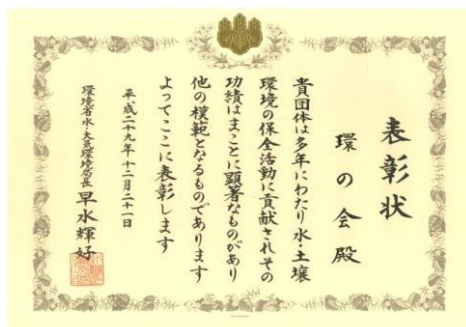 表彰状
環の会殿
貴団体は多年にわたり水・土壌
環境の保全活動に貢献されその
功績はまことに顕著なものがあり
他の模範となるものであります
よってここに表彰します
平成二十九年十二月二十一日
環境省水・大気環境局長 早水輝好